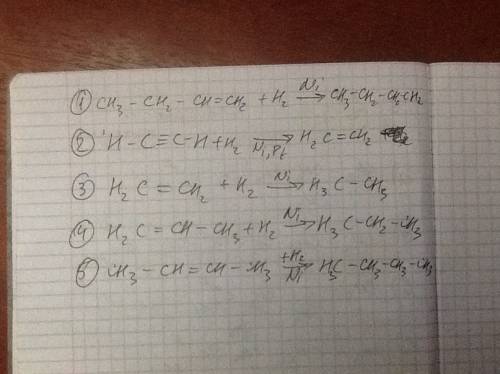 ① CH₃ – CH₂ – CH = CH₂ + H₂ →(Ni) CH₃ – CH₂ – CH₂ – CH₂
② H – C ≡ C – H + H₂ →(Ni, Pt) H₂C = CH₂
③ H₂C = CH₂ + H₂ →(Ni) H₃C – CH₃
④ H₂C = CH – CH₃ + H₂ →(Ni) H₃C – CH₂ – CH₃
⑤ CH₃ – CH = CH – CH₃ →(+H₂, Ni) H₃C – CH₂ – CH₂ – CH₃